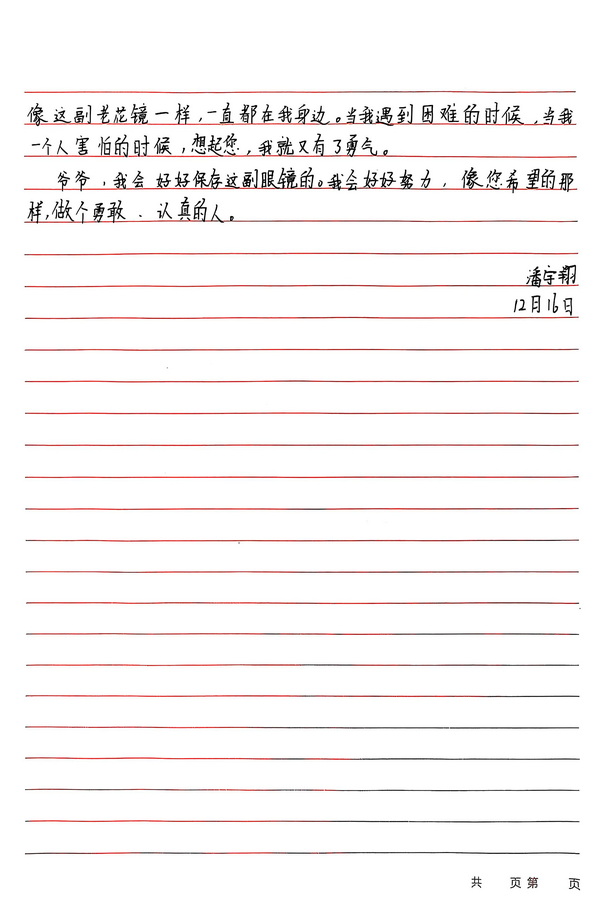 像这副老花镜一样，一直都在我身边。当我遇到困难的时候，当我
一个人害怕的时候，想起您，我就又有了勇气。
爷爷，我会好好保存这副眼镜的。我会好好努力，像您希望的那
样，做个勇敢、认真的人。
潘宇翔
12月16日
共 页 第 页